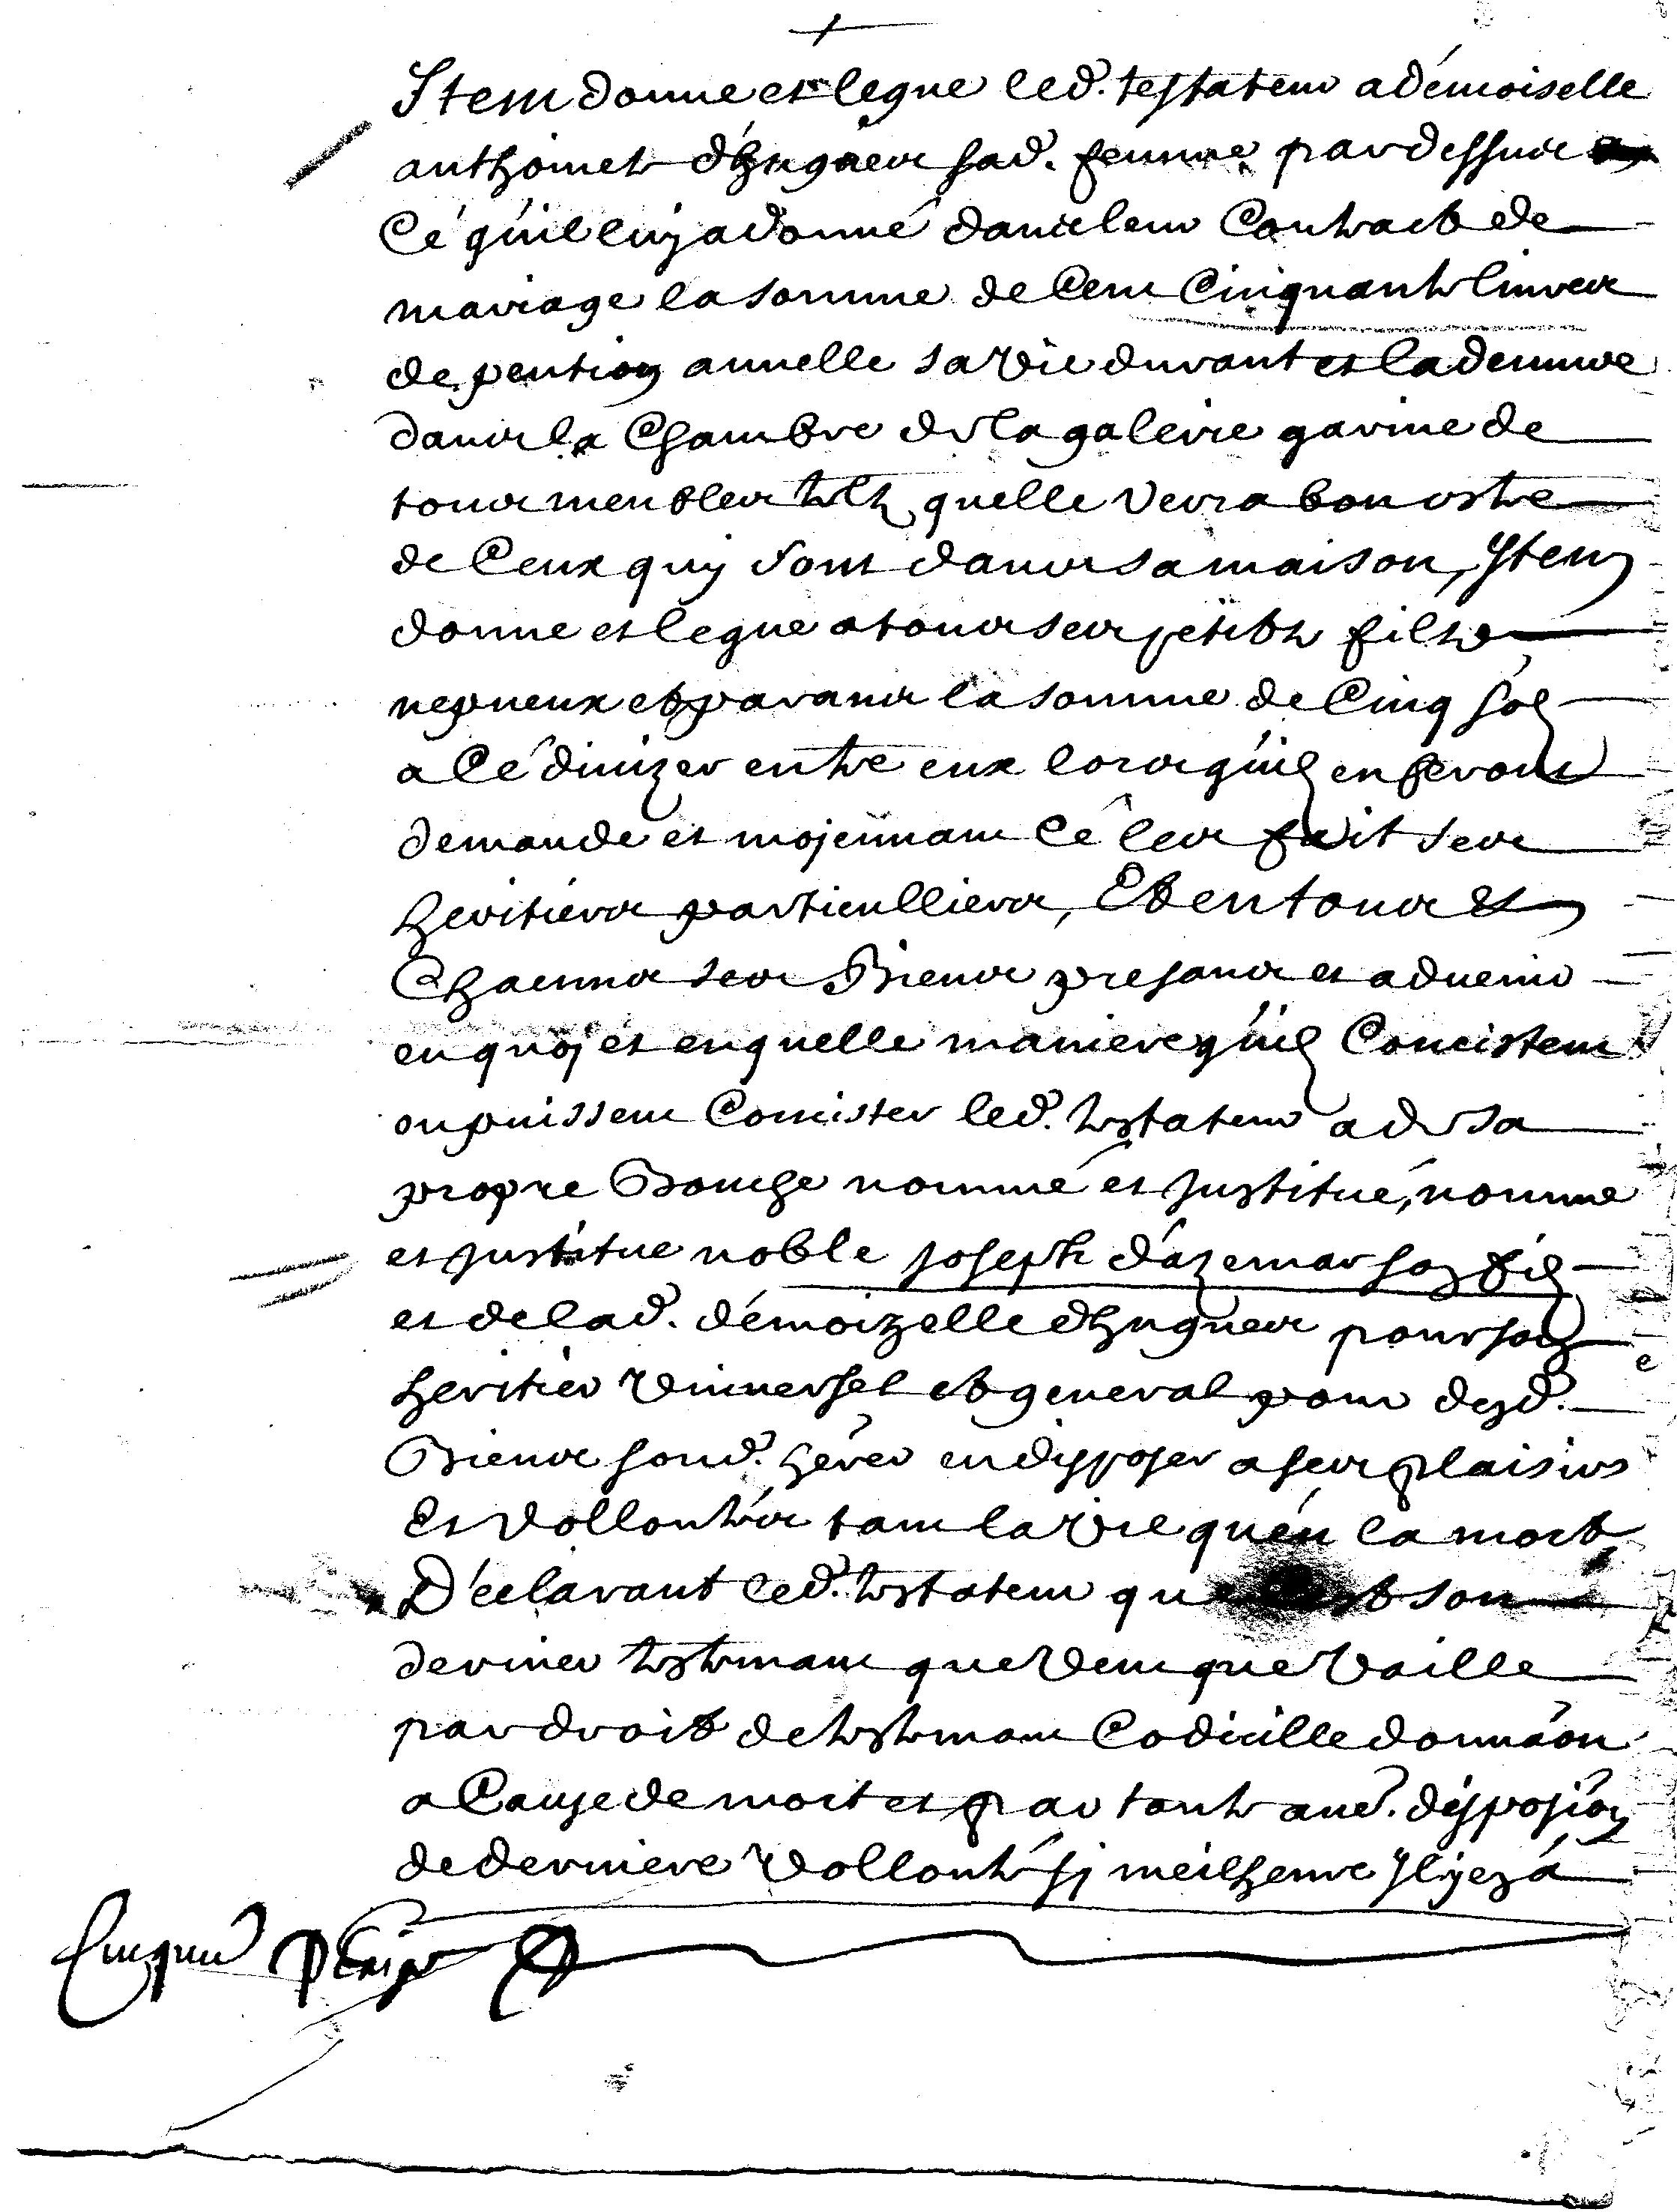 Item donne et legue led. testateur a démoiselle
anthoinete d'hugues sad. femme par dessus
Cé qu'il luy a donné dans leur Contract de
mariage la somme de Cent Cinquante livres
de pention annelle sa vie durant et lademure
dans la Chambre de la galerie garnie de
tous meubles telz quelle verra bon estre
de Ceux quy sont dans sa maison, Item
donne et legue a tous ses petitz filz
nepueux et parans la somme de Cinq solz
a Cé diuizer entre eux lors qu'ilz en feront
demande et mojennant Cé les fait ses
heritiers particulliers, Et en tous et
Chacuns ses Biens presans et aduenir
en quoj et en quelle maniere qu'ilz Concistent
ou puissent Concister led. testateur a de sa
propre Bouche nommé et justitué, nomme
et justitue noble joseph d'azemar son filz
et de lad. démoizelle d'hugues pour son
heritier Vniuersel et general pour desd.
Biens sond. hérer en dispozer a ses plaisirs
Et vollontés tant la vie qu'en la mort
Déclarant led. testateur que C'est son
dernier testemant que veut que vaille
par droit de testemant Codicille donnaôn
a Cause de mort et par toute autre. disposiôn
de derniere vollonté sy meilheure Il y eza